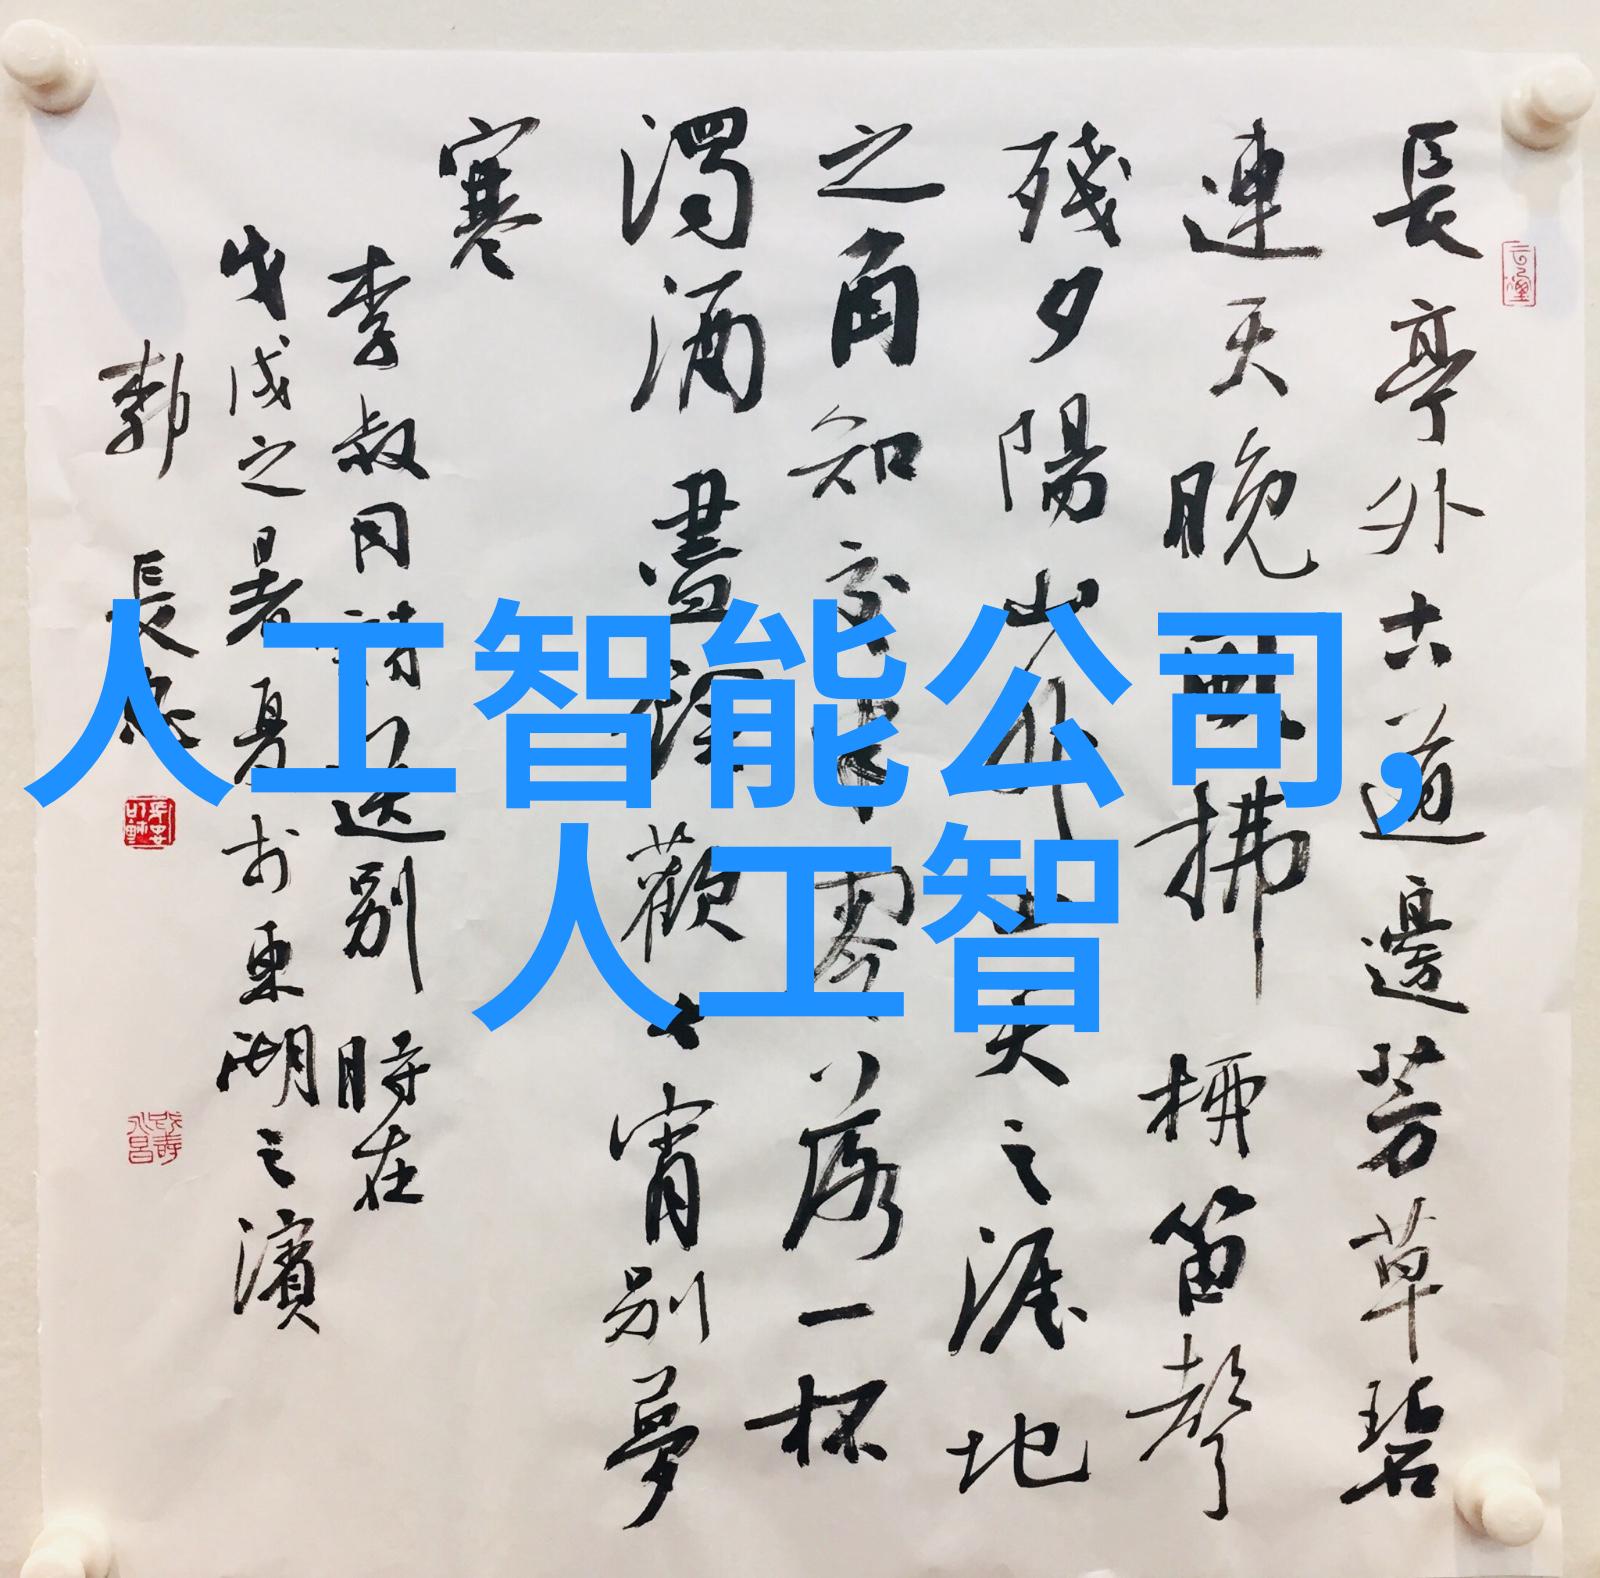 長亭外古道邊芳草碧
連天晚風拂柳笛聲
殘夕陽山外山天之涯地
之角知交半零落一杯
濁酒盡餘歡今宵別夢
寒
李叔同詩送別 時在
戊戌之暑夏於東湖之濱
長
人工智能公司,
人工智